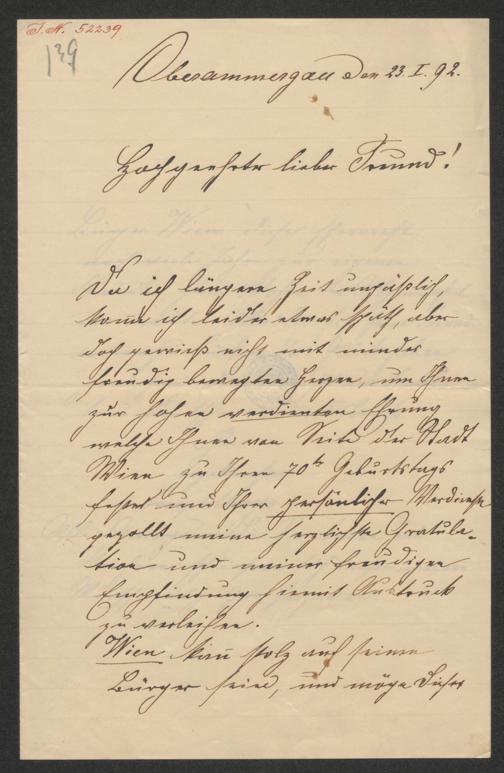 I.N. 52239
139
Oberammergau den 23. I. 92.
Hochgeehrter lieber Freund!
Da ich längere Zeit unpäßlich,
kom̄e ich leider etwas spät, aber
doch gewieß nicht mit minder
freudig bewegten Herzen, um Ihnen
zur hohen verdienten Ehrung
welche Ihnen von Seite der Stadt
Wien zu Ihren 70t Geburtstags
festes und Ihrer persönlicher Verdienste
gezollt meine herzlichste Gratula-
tion und meiner freudigen
Empfindung hiemit Ausdruck
zu verleihen.
Wien kan̄ stolz auf seinen
Bürger sein, und möge dieser